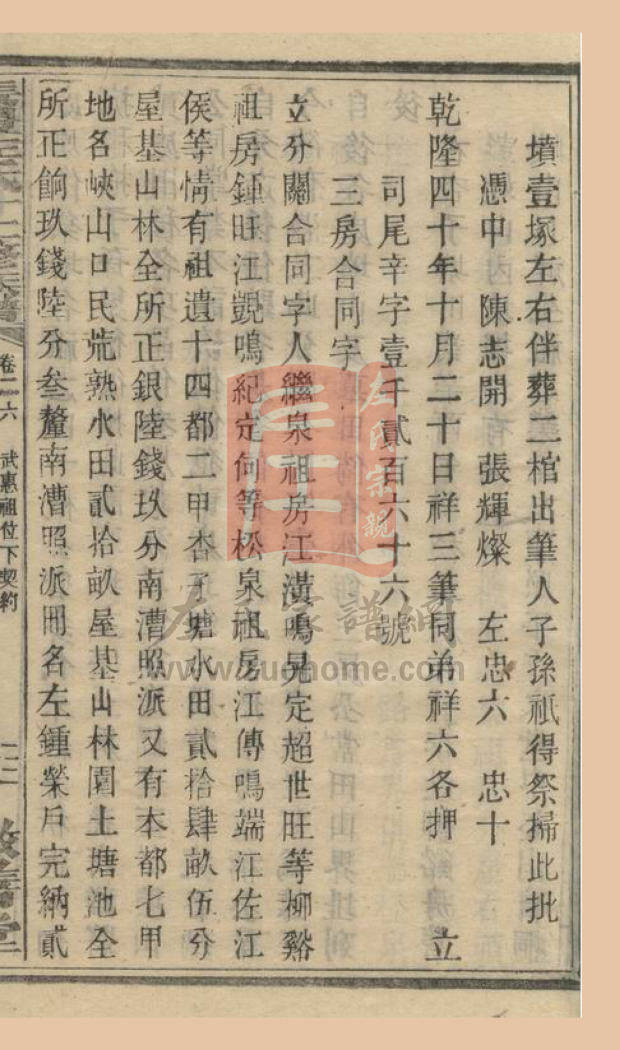 墳壹塚左右伴葬二棺出筆人子孫祇得祭掃此批
憑中　陳志開　張輝燦　左忠六　忠十
乾隆四十年十月二十日祥三筆同弟祥六各押　立
司尾辛字壹千貳百六十六號
三房合同字
立分關合同字人繼泉祖房江潢鳴晃定超世旺等柳谿
祖房鍾旺江覬鳴紀定何等松泉祖房江傳鳴端江佐江
侯等情有祖遺十四都二甲杏子塘水田貳拾肆畝伍分
屋基山林全所正銀陸錢玖分南漕照派又有本都七甲
地名峽山口民荒熟水田貳拾畝屋基山林園土塘池全
所正餉玖錢陸分叁釐南漕照派冊名左鍾榮戶完納貳
卷二六　武惠祖位下契約
二三
左氏宗親
左氏家譜網
www.zuohome.com